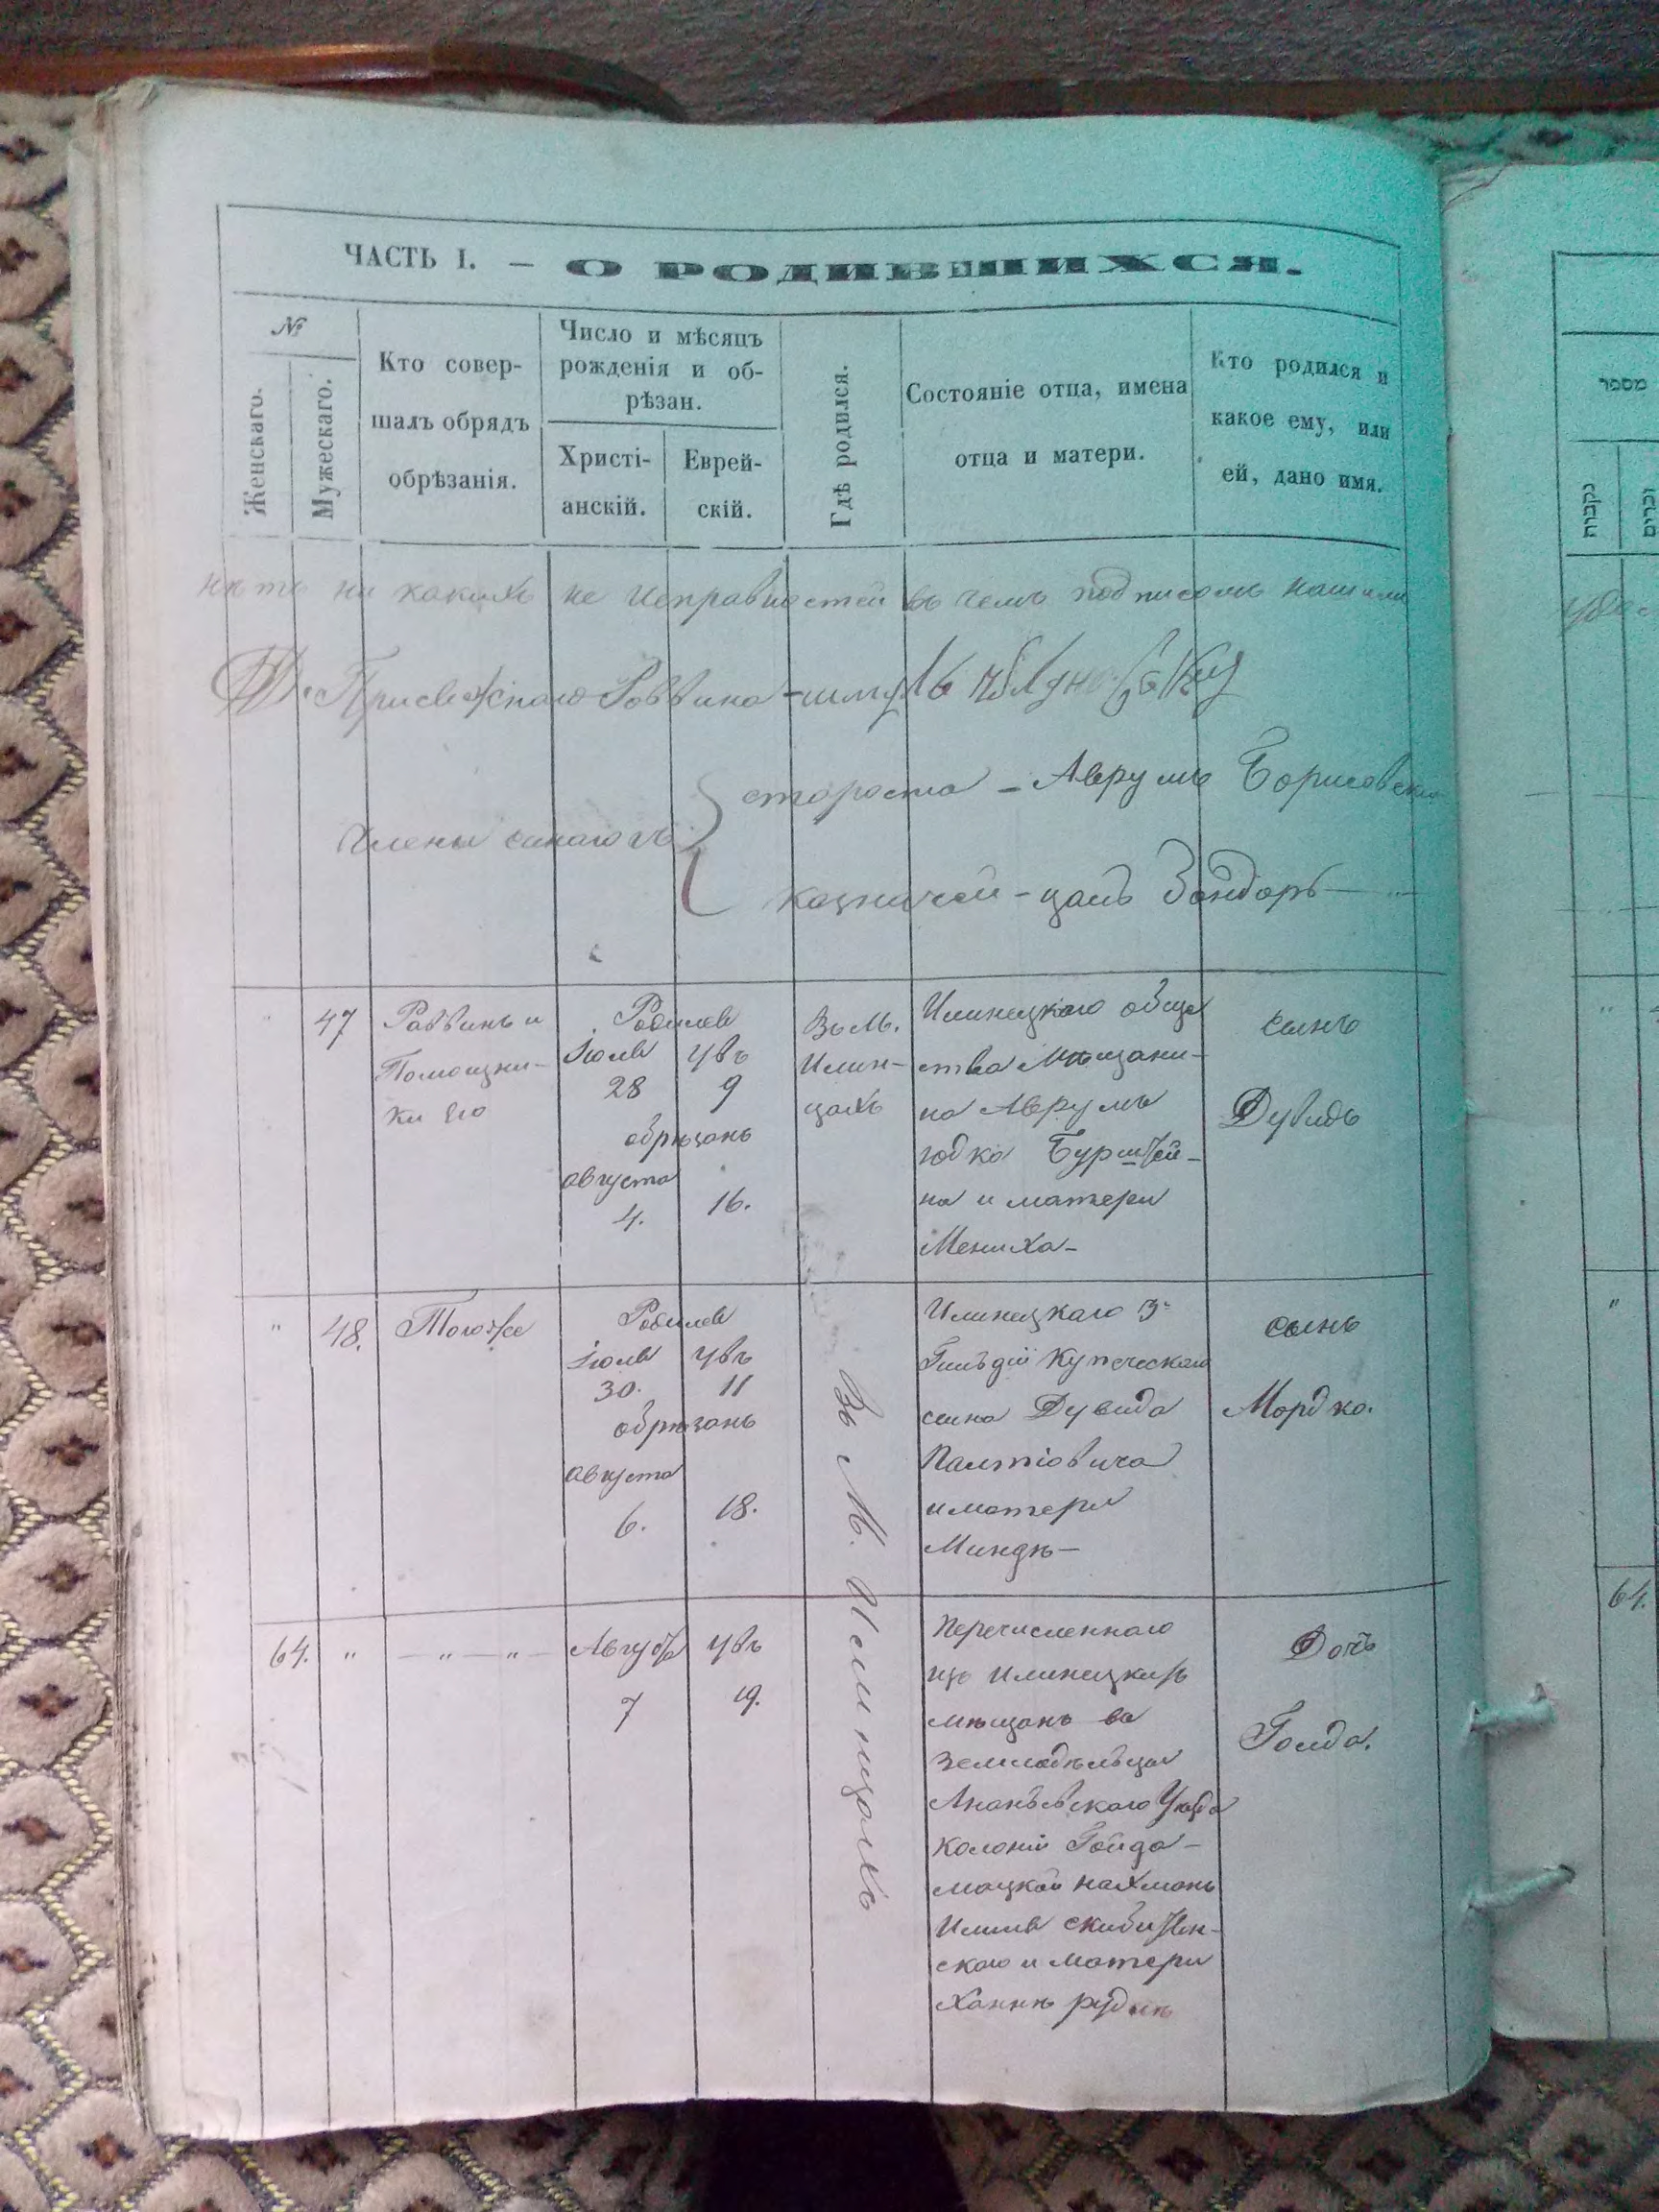 ЧАСТЬ I. — О РОДИВШИХСЯ.
№
Женскаго.
Мужескаго.
Кто совер-
шалъ обрядъ
обрѣзанія.
Число и мѣсяцъ
рожденія и об-
рѣзан.
Христі-
анскій.
Еврей-
скій.
Гдѣ родился.
Состояніе отца, имена
отца и матери.
Кто родился и
какое ему, или
ей, дано имя.
нѣтъ ни какихъ не исправностей въ чемъ подписомъ нашими
Присяжнаго Раввина - шмуль
члены синагогъ
староста - Аврумъ Борисовскій
казначей - Зандоръ
47
Раввинъ и
Помощни-
ки его
Родился
Іюля увъ
28 9
обрѣзанъ
августа
4. 16.
Въ М.
Илин-
цахъ
Илинецкаго обще
ства Мѣщани-
на Аврумъ
юдка Бурштей-
на и матери
Мениха-
сынъ
Дувидъ
" 48.
Тогоже
Родился
Іюля увъ
30. 11
обрѣзанъ
августа
6. 18.
Въ М. Илинцахъ
Илинецкаго 3й
Гильдіи Купеческаго
сына Дувида
Палтіовича
и матери
Миндѣ-
сынъ
Мордко.
64. " — " — " —
Август увъ
7 19.
Перечисленнаго
изъ Илинецкихъ
мѣщанъ въ
земледѣльца
Ананьевскаго Уѣзда
колоніи Гайда-
мацкой Нахманъ
скибин-
скаго и матери
Ханнѣ
Дочь
Голда.
מספר
נקבות
זכרים
"
64.